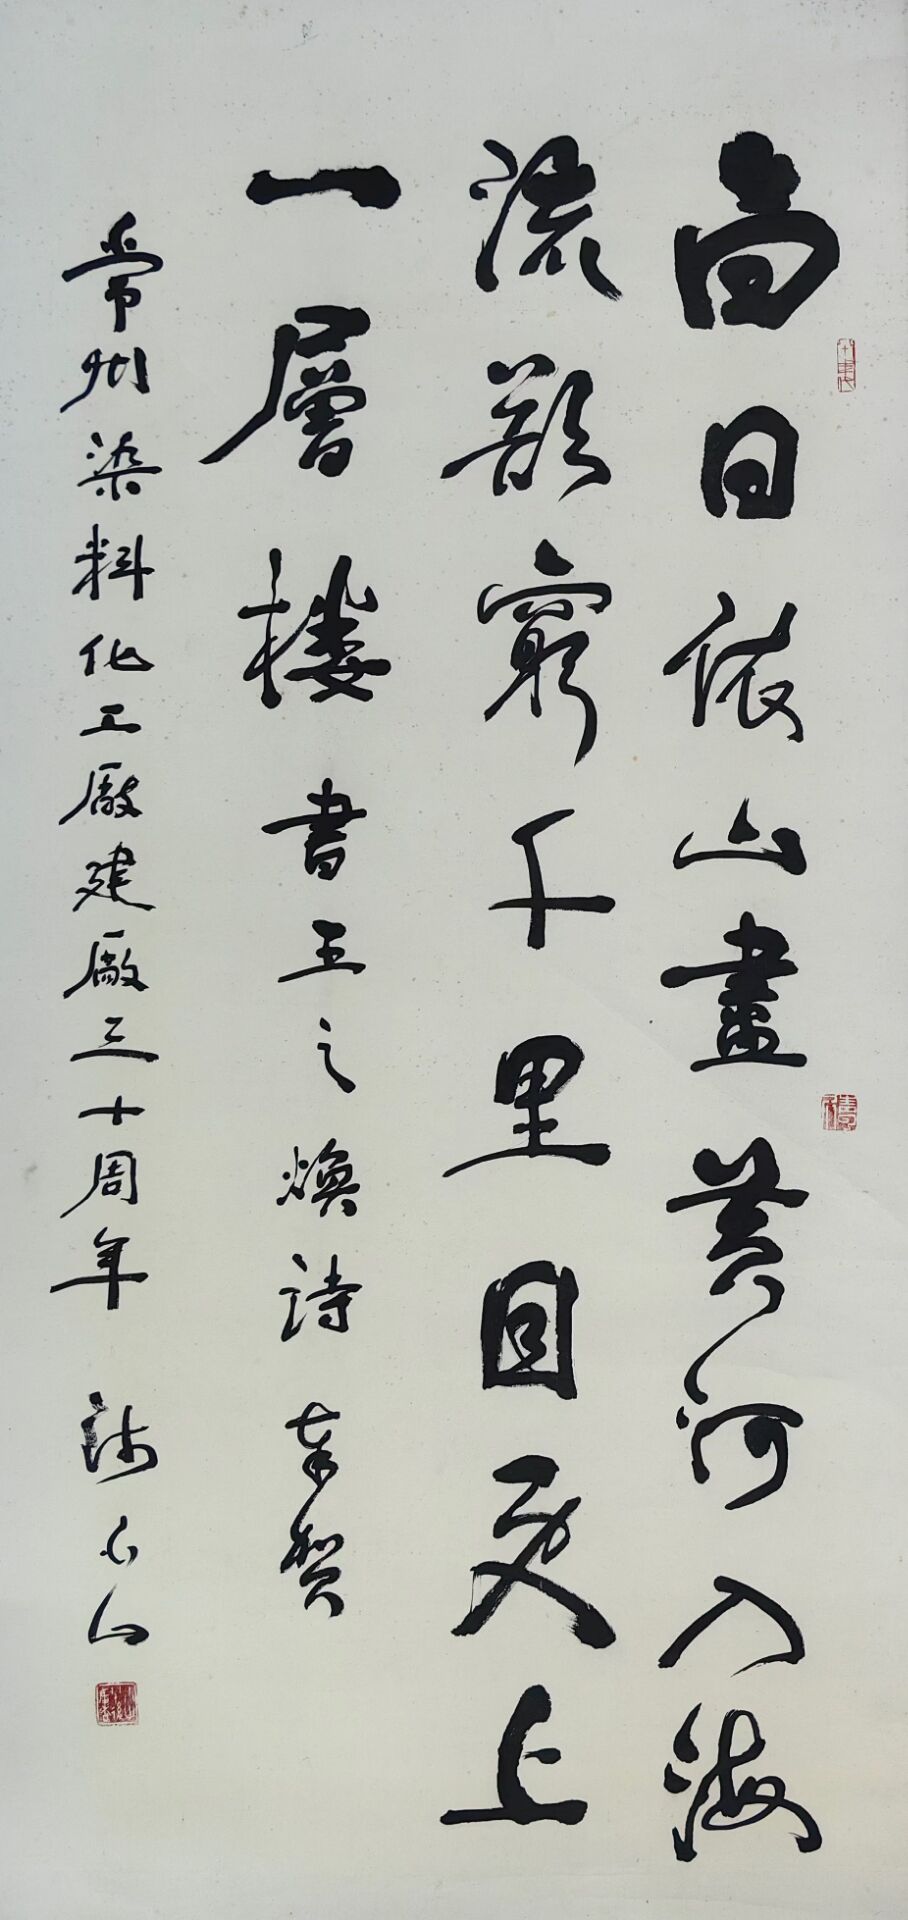 白日依山盡黃河入海
流欲窮千里目更上
一層樓書王之煥詩奉賀
常州染料化工廠建廠三十周年